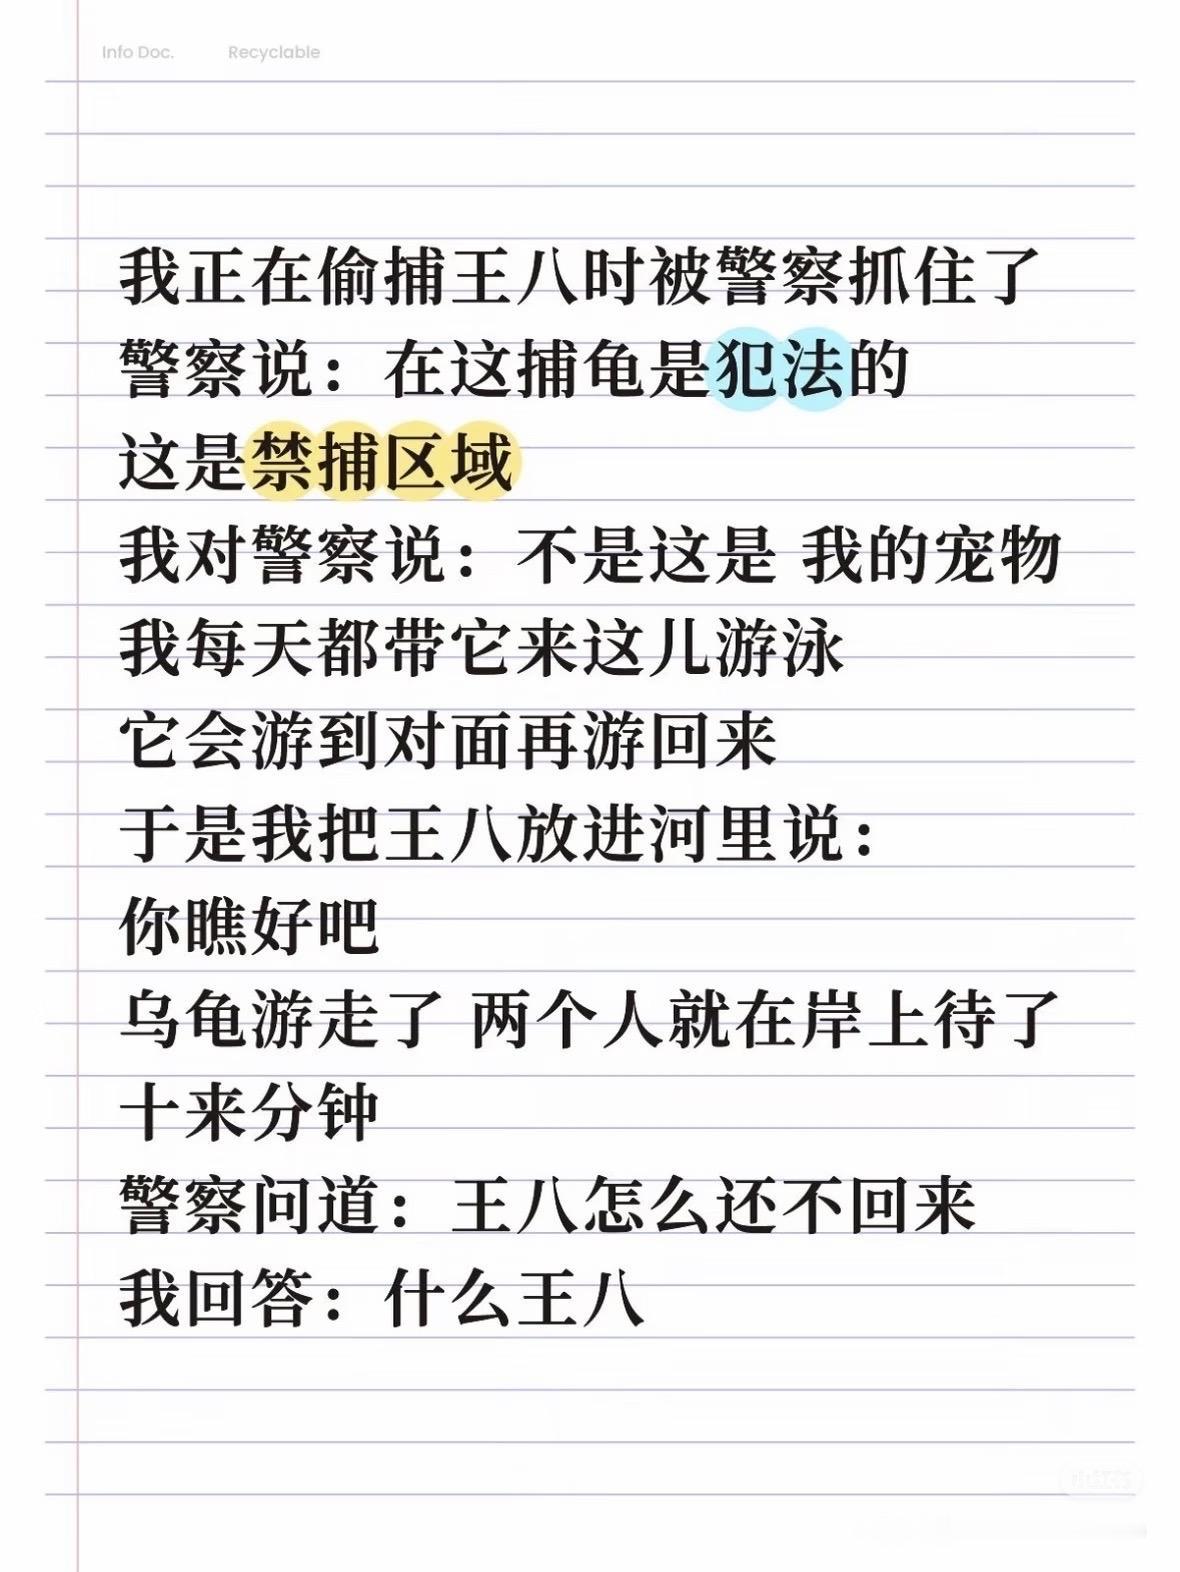 Info Doc. Recyclable
我正在偷捕王八时被警察抓住了
警察说：在这捕龟是犯法的
这是禁捕区域
我对警察说：不是这是 我的宠物
我每天都带它来这儿游泳
它会游到对面再游回来
于是我把王八放进河里说：
你瞧好吧
乌龟游走了 两个人就在岸上待了
十来分钟
警察问道：王八怎么还不回来
我回答：什么王八